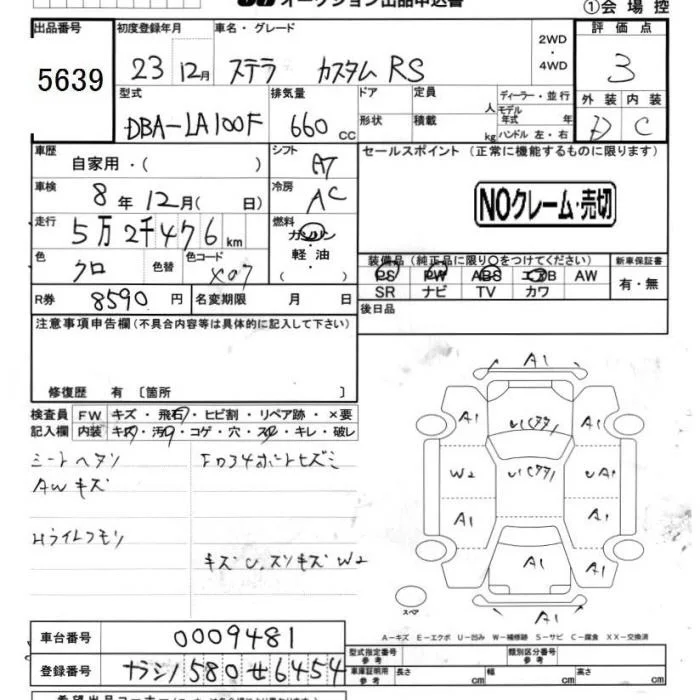 オークション出品申込書
①会場控
出品番号 初度登録年月 車名・グレード 評価点
5639 23 12月 ステラ カスタムRS 2WD・4WD 3
型式 排気量 ドア 定員 ディーラー・並行 外装 内装
DBA-LA100F 660cc 形状 積載 人 kg モデル年式 年式 ハンドル 左・右 D C
車歴 自家用・( ) シフト AT セールスポイント (正常に機能するものに限ります)
車検 8年12月( 日) 冷房 AC NOクレーム・売切
走行 5万2千476km 燃料 ガソリン・軽油・( )
色 クロ 色替 色コード X07
装備品(純正品に限り○をつけてください) 新車保証書
PS PW ABS エアB AW 有・無
SR ナビ TV カワ
R券 8590円 名変期限 月 日 後日品
注意事項申告欄(不具合内容等は具体的に記入して下さい)
修復歴 有〔箇所 〕
検査員 FW キズ・飛石・ヒビ割・リペア跡・×要
記入欄 内装 キズ・汚レ・コゲ・穴・スレ・キレ・破レ
シートヘタリ
AWキズ
Hライトクモリ
キズU、スリキズ W2
A1
A1 A1
W2 UA1
A1 A1
A1
A1
スペア
A-キズ E-エクボ U-凹み W-補修跡 S-サビ C-腐食 XX-交換済
車台番号 0009481
型式指定番号 参考 類別区分番号 参考
登録番号 ナラシノ580せ6454
車庫証明用 参考 長さ cm 幅 cm 高さ cm